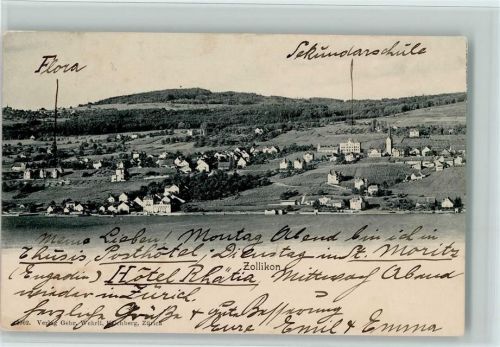 Flora
Sekundarschule
Meine Lieben! Montag Abend bin ich in
Thusis, Posthôtel, Dienstag in St. Moritz
Zollikon
(Engadin) Hôtel Rhätia, Mittwoch Abend
wieder in Zürich.
herzliche Grüße & gute Besserung
Verlag Gebr. Wehrli, Kilchberg, Zürich
Eure Emil & Emma